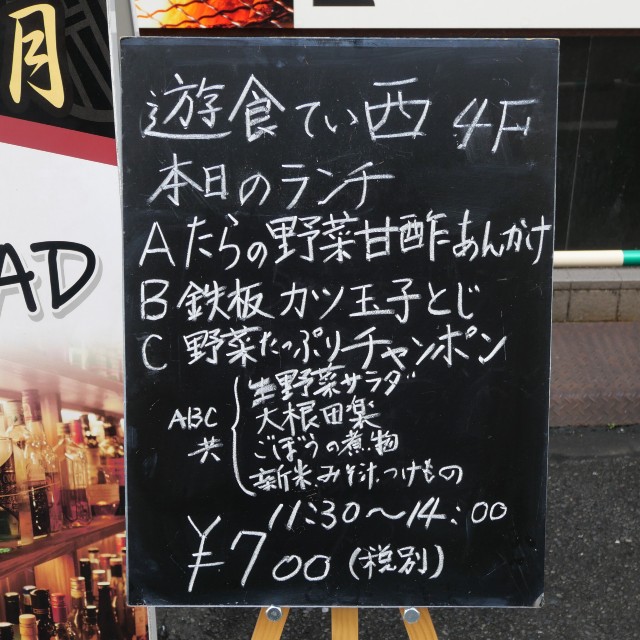 月
AD
遊食てい西 4F
本日のランチ
A たらの野菜甘酢あんかけ
B 鉄板カツ玉子とじ
C 野菜たっぷりチャンポン
ABC共
生野菜サラダ
大根田楽
ごぼうの煮物
新米みそ汁つけもの
11:30〜14:00
¥700(税別)